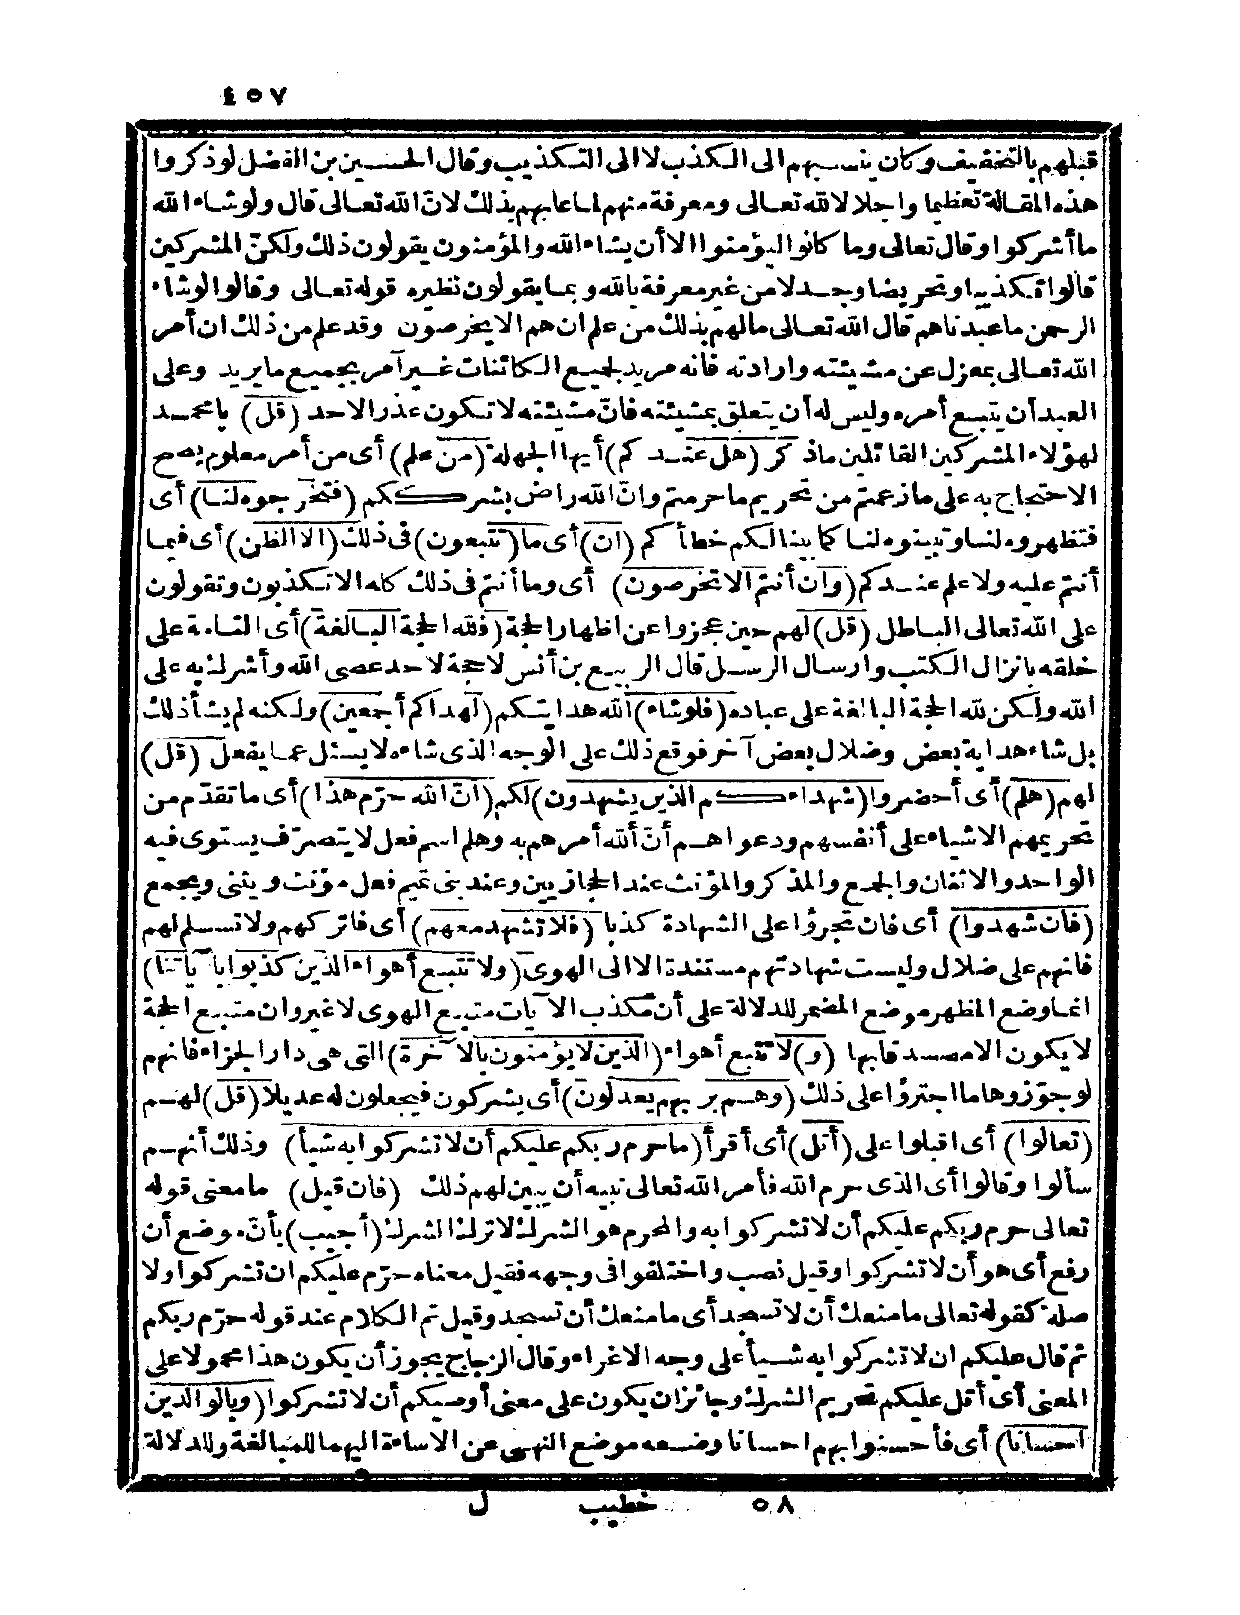 ٤٥٧
قبلهم بالتخفيف وكان ينسبهم الى الكذب لا الى التكذيب وقال الحسين بن الفضل لو ذكروا
هذه المقالة تعظيما واجلالا لله تعالى ومعرفة منهم لما عابهم بذلك لان الله تعالى قال ولو شاء الله
ما أشركوا وقال تعالى وما كانوا ليؤمنوا الا أن يشاء الله والمؤمنون يقولون ذلك ولكنّ المشركين
قالوا تكذيبا وتحريضا وجدلا من غير معرفة بالله وبما يقولون نظيره قوله تعالى وقالوا لو شاء
الرحمن ما عبدناهم قال الله تعالى ما لهم بذلك من علم ان هم الا يخرصون وقد علم من ذلك ان أمر
الله تعالى بمعزل عن مشيئته وارادته فانه مريد لجميع الكائنات غير آمر بجميع ما يريد وعلى
العبد أن يتبع أمره وليس له أن يتعلق بمشيئته فانّ مشيئته لا تكون عذرا لاحد (قل) يا محمد
لهؤلاء المشركين القائلين ما ذكر (هل عندكم) أيها الجهلة (من علم) أى من أمر معلوم يصح
الاحتجاج به على ما زعمتم من تحريم ما حرمتم وانّ الله راض بشرككم (فتخرجوه لنا) أى
فتظهروه لنا وتبينوه لنا كما بينا لكم خطأكم (ان) أى ما (تتبعون) فى ذلك (الا الظن) أى فيما
أنتم عليه ولا علم عندكم (وان أنتم الا تخرصون) أى وما أنتم فى ذلك كله الا تكذبون وتقولون
على الله تعالى الباطل (قل) لهم حين عجزوا عن اظهار الحجة (فلله الحجة البالغة) أى التامة على
خلقه بانزال الكتب وارسال الرسل قال الربيع بن أنس لا حجة لاحد عصى الله وأشرك به على
الله ولكن لله الحجة البالغة على عباده (فلو شاء) الله هدايتكم (لهداكم أجمعين) ولكنه لم يشأ ذلك
بل شاء هداية بعض وضلال بعض آخر فوقع ذلك على الوجه الذى شاءه لا يسئل عما يفعل (قل)
لهم (هلم) أى أحضروا (شهداءكم الذين يشهدون) لكم (انّ الله حرّم هذا) أى ما تقدّم من
تحريمهم الاشياء على أنفسهم ودعواهم أنّ الله أمرهم به وهلم اسم فعل لا يتصرّف يستوى فيه
الواحد والاثنان والجمع والمذكر والمؤنث عند الحجازيين وعند بنى تميم فعل مؤنث ويثنى ويجمع
(فان شهدوا) أى فان تجرؤا على الشهادة كذبا (فلا تشهد معهم) أى فاتركهم ولا تسلم لهم
فانهم على ضلال وليست شهادتهم مستندة الا الى الهوى (ولا تتبع أهواء الذين كذبوا بآياتنا)
انما وضع المظهر موضع المضمر للدلالة على أن مكذب الآيات متبع الهوى لا غير وان متبع الحجة
لا يكون الا مصدقا بها (و) لا تتبع أهواء (الذين لا يؤمنون بالآخرة) التى هى دار الجزاء فانهم
لو جوّزوها ما اجترؤا على ذلك (وهم بربهم يعدلون) أى يشركون فيجعلون له عديلا (قل) لهم
(تعالوا) أى اقبلوا على (أتل) أى أقرأ (ما حرم ربكم عليكم أن لا تشركوا به شيأ) وذلك أنهم
سألوا وقالوا أى الذى حرم الله فأمر الله تعالى نبيه أن يبين لهم ذلك (فان قيل) ما معنى قوله
تعالى حرم ربكم عليكم أن لا تشركوا به والمحرم هو الشرك لا ترك الشرك (أجيب) بأنّ موضع أن
رفع أى هو أن لا تشركوا وقيل نصب واختلفوا فى وجهه فقيل معناه حرّم عليكم ان تشركوا ولا
صلة كقوله تعالى ما منعك أن لا تسجد أى ما منعك أن تسجد وقيل تم الكلام عند قوله حرّم ربكم
ثم قال عليكم ان لا تشركوا به شيأ على وجه الاغراء وقال الزجاج يجوز أن يكون هذا محمولا على
المعنى أى أتل عليكم تحريم الشرك وجائز ان يكون على معنى أوصيكم أن لا تشركوا (وبالوالدين
احسانا) أى فأحسنوا بهم احسانا وضعه موضع النهى عن الاساءة اليهما للمبالغة وللدلالة
٥٨ خطيب ل